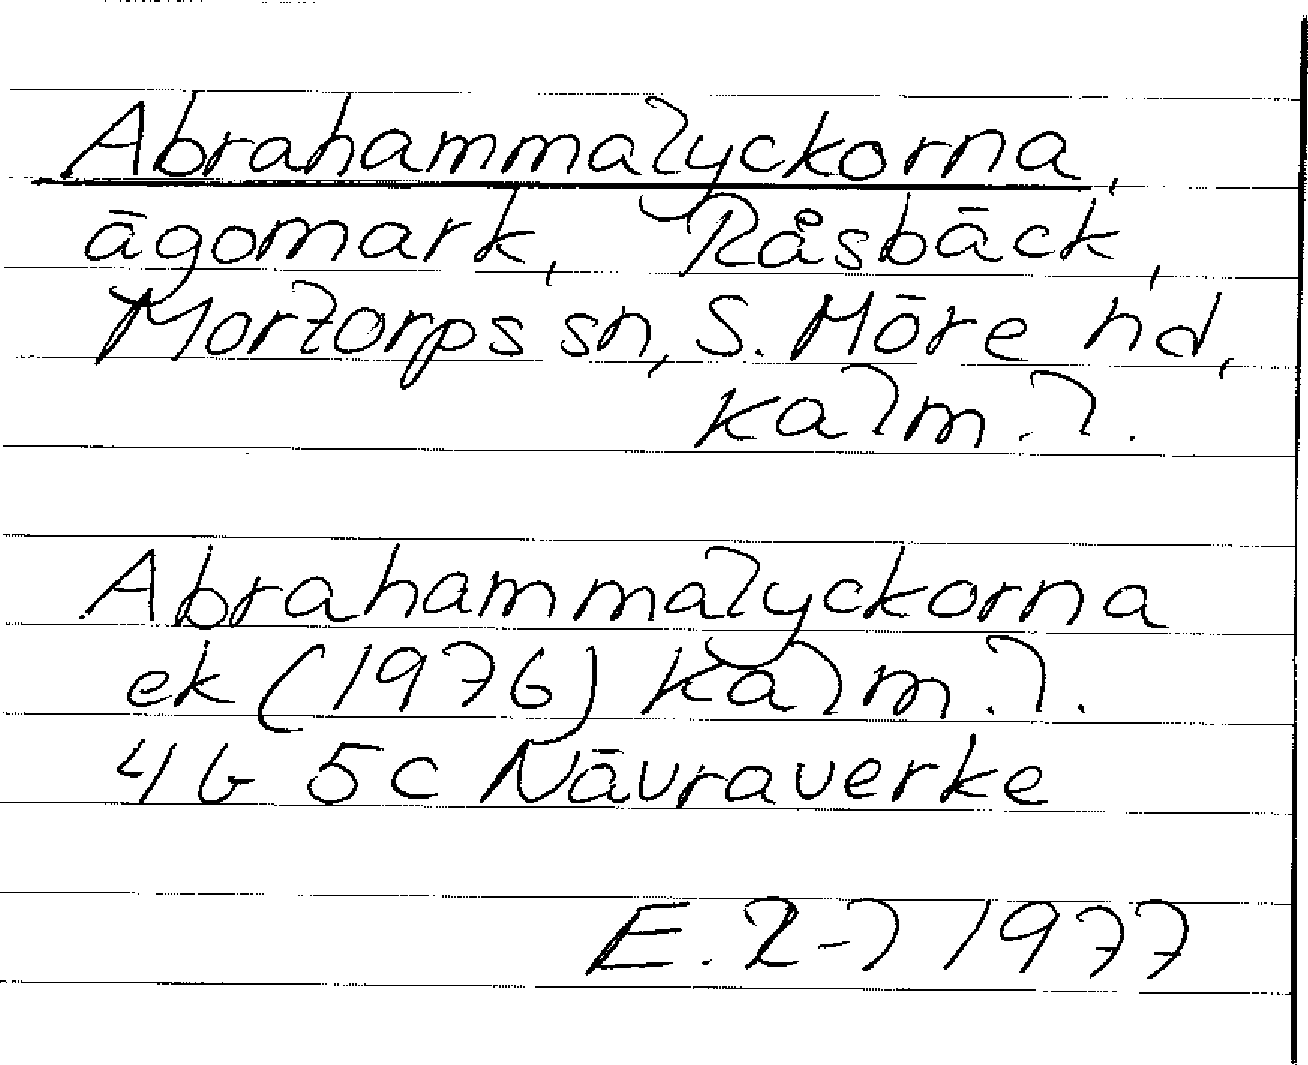 Abrahammalyckorna,
ägomark, Råsbäck,
Mortorps sn, S. Möre hd,
Kalm. l.
Abrahammalyckorna
ek (1976) Kalm. l.
4G 5c Nävraverke
E. R-l 1977